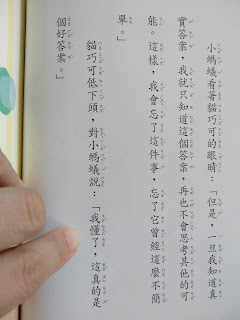 小螞蟻看著貓巧可的眼睛：「但是，一旦我知道真
實答案，我就只知道這個答案，再也不會思考其他的可
能。這樣，我會忘了這件事，忘了它曾經這麼不簡
單。」
貓巧可低下頭，對小螞蟻說：「我懂了，這真的是
個好答案。」